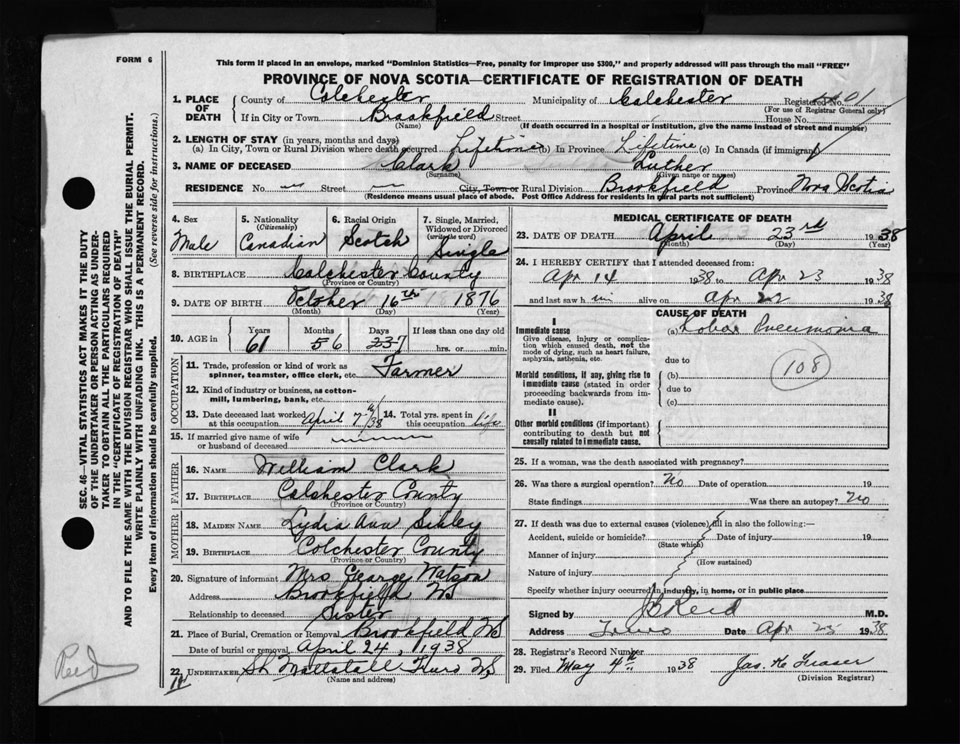 FORM 6
This form if placed in an envelope, marked "Dominion Statistics—Free, penalty for improper use $300," and properly addressed will pass through the mail "FREE"
PROVINCE OF NOVA SCOTIA—CERTIFICATE OF REGISTRATION OF DEATH
1. PLACE OF DEATH { County of Colchester Municipality of Colchester Registered No. 01
(For use of Registrar General only)
If in City or Town Brookfield Street House No.
(Name) (If death occurred in a hospital or institution, give the name instead of street and number)
2. LENGTH OF STAY (in years, months and days)
(a) In City, Town or Rural Division where death occurred Lifetime (b) In Province Lifetime (c) In Canada (if immigrant)
3. NAME OF DECEASED Clark Luther
(Surname) (Given name or names)
RESIDENCE No. Street City, Town or Rural Division Brookfield Province Nova Scotia
(Residence means usual place of abode. Post Office Address for residents in rural parts not sufficient)
4. Sex 5. Nationality 6. Racial Origin 7. Single, Married, Widowed or Divorced
(Citizenship) (write the word)
Male Canadian Scotch Single
8. BIRTHPLACE Colchester County
(Province or Country)
9. DATE OF BIRTH October 16th 1876
(Month) (Day) (Year)
10. AGE in { Years Months Days If less than one day old
61 5 6 23 7 hrs. or min.
OCCUPATION
11. Trade, profession or kind of work as spinner, teamster, office clerk, etc. Farmer
12. Kind of industry or business, as cotton-mill, lumbering, bank, etc.
13. Date deceased last worked at this occupation April 7th/38 14. Total yrs. spent in this occupation life
15. If married give name of wife or husband of deceased
FATHER
16. NAME William Clark
17. BIRTHPLACE Colchester County
(Province or Country)
MOTHER
18. MAIDEN NAME Lydia Ann
19. BIRTHPLACE Colchester County
(Province or Country)
20. Signature of informant Mrs George Watson
Address Brookfield NS
Relationship to deceased Sister
21. Place of Burial, Cremation or Removal Brookfield NS
Date of burial or removal April 24, 1938
22. UNDERTAKER Truro NS
(Name and address)
MEDICAL CERTIFICATE OF DEATH
23. DATE OF DEATH April 23rd 1938
(Month) (Day) (Year)
24. I HEREBY CERTIFY that I attended deceased from:
Apr 14 1938 to Apr 23 1938
and last saw him alive on Apr 22 1938
CAUSE OF DEATH
I
Immediate cause (a) Lobar Pneumonia
Give disease, injury or complication which caused death, not the mode of dying, such as heart failure, asphyxia, asthenia, etc.
due to
108
Morbid conditions, if any, giving rise to immediate cause (stated in order proceeding backwards from immediate cause).
(b)
due to
(c)
II
Other morbid conditions (if important) contributing to death but not causally related to immediate cause.
25. If a woman, was the death associated with pregnancy?
26. Was there a surgical operation? No Date of operation 19
State findings Was there an autopsy? No
27. If death was due to external causes (violence) fill in also the following:
Accident, suicide or homicide? Date of injury 19
(State which)
Manner of injury
(How sustained)
Nature of injury
Specify whether injury occurred in industry, in home, or in public place
Signed by Reid M.D.
Address Truro Date Apr 25 1938
28. Registrar's Record Number
29. Filed May 4th 1938 Jas. K Fraser
(Division Registrar)
SEC. 46—VITAL STATISTICS ACT MAKES IT THE DUTY
OF THE UNDERTAKER OR PERSON ACTING AS UNDER-
TAKER TO OBTAIN ALL THE PARTICULARS REQUIRED
IN THE "CERTIFICATE OF REGISTRATION OF DEATH"
AND TO FILE THE SAME WITH THE DIVISION REGISTRAR WHO SHALL ISSUE THE BURIAL PERMIT.
WRITE PLAINLY WITH UNFADING INK. THIS IS A PERMANENT RECORD.
Every item of information should be carefully supplied. (See reverse side for instructions.)